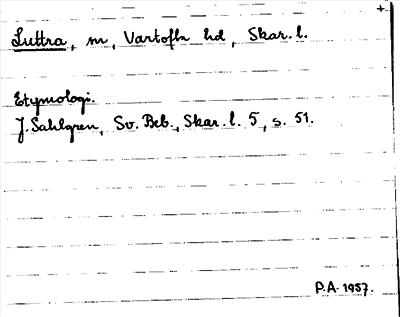 +
Luttra, m, Vartofta hd, Skar. l.
Etymologi.
J. Sahlgren, Sv. Beb., Skar. l. 5, s. 51.
P.A. 1957.